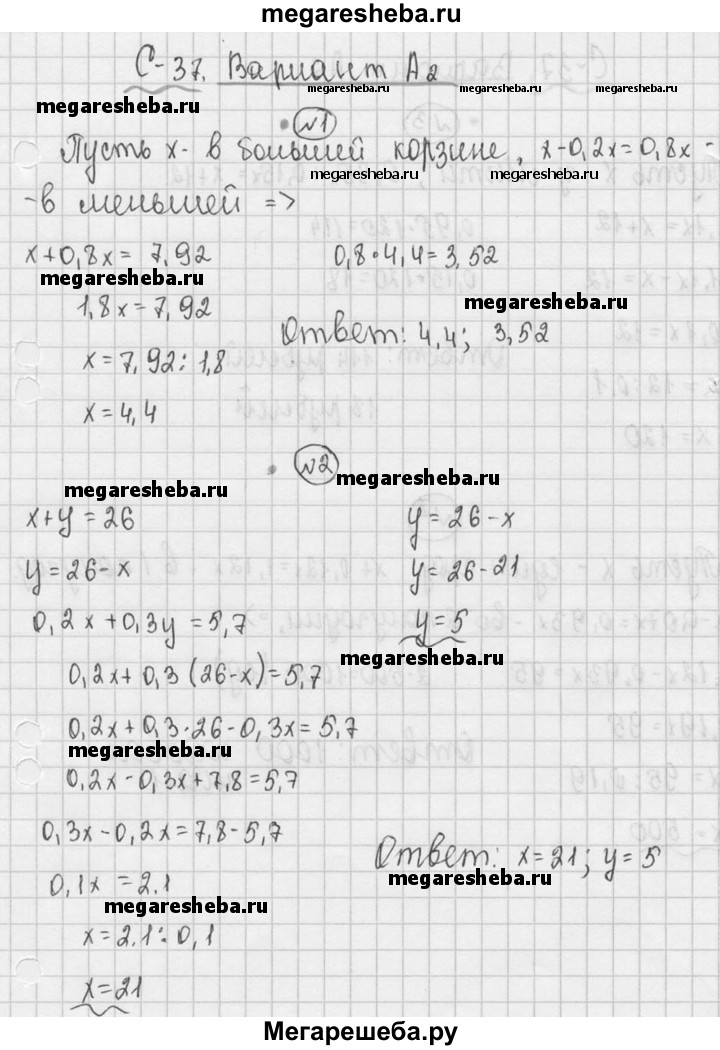 megaresheba.ru
С-37. Вариант А2
megaresheba.ru megaresheba.ru
№1
Пусть x- в большей корзине, x-0,2x=0,8x -
megaresheba.ru megaresheba.ru
-в меньшей =>
x+0,8x= 7,92 0,8·4,4=3,52
megaresheba.ru megaresheba.ru
1,8x=7,92
Ответ: 4,4; 3,52
x=7,92:1,8
x=4,4
№2
megaresheba.ru megaresheba.ru
x+y=26 y=26-x
y=26-x y=26-21
0,2x+0,3y=5,7 y=5
megaresheba.ru
0,2x+0,3(26-x)=5,7
0,2x+0,3·26-0,3x=5,7
megaresheba.ru
0,2x-0,3x+7,8=5,7
0,3x-0,2x=7,8-5,7
Ответ: x=21; y=5
megaresheba.ru
0,1x=2.1
megaresheba.ru
x=2.1:0,1
x=21
Мегарешеба.ру